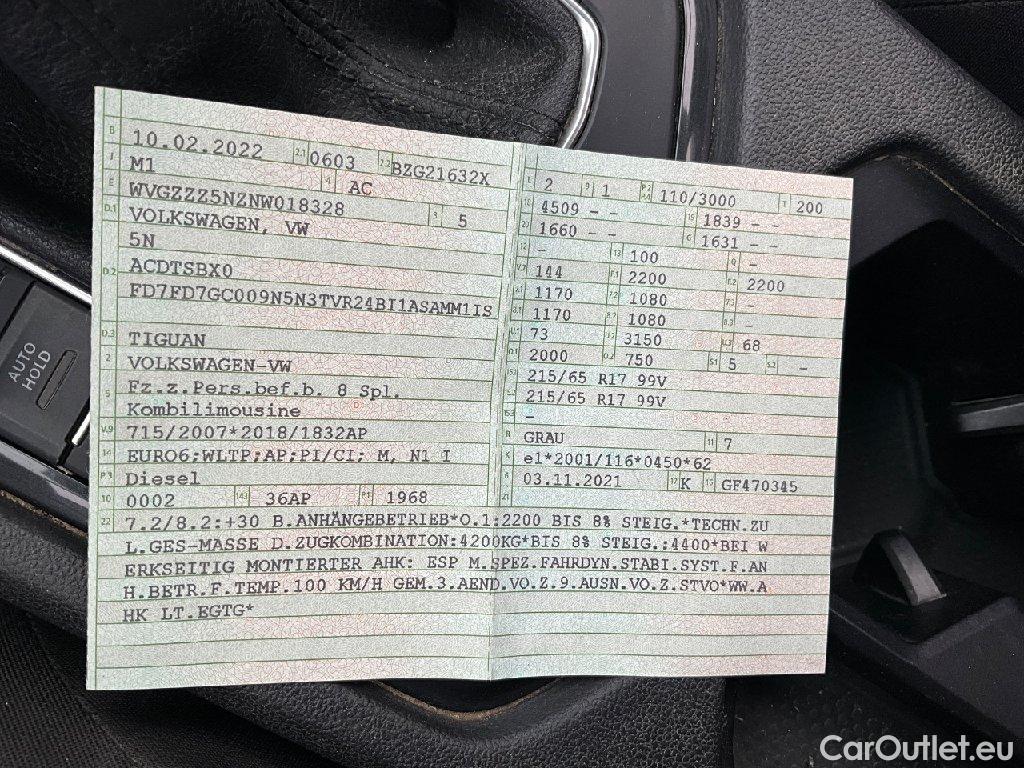 B 10.02.2022 2.1 0603 2.2 BZG21632X
J M1 4 AC
E WVGZZZ5NZNW018328 3 5
D.1 VOLKSWAGEN, VW
5N
D.2 ACDTSBX0
FD7FD7GC009N5N3TVR24BI1ASAMM1IS
D.3 TIGUAN
2 VOLKSWAGEN-VW
5 Fz.z.Pers.bef.b. 8 Spl.
Kombilimousine
V.9 715/2007*2018/1832AP
14 EURO6;WLTP;AP;PI/CI; M, N1 I
P.3 Diesel
10 0002 14.1 36AP P.1 1968
L 2 9 1 P.2 P.4 110/3000 T 200
18 4509 - - 19 1839 - -
20 1660 - - G 1631 - -
12 - 13 100 Q -
V.7 144 F.1 2200 F.2 2200
7.1 1170 7.2 1080 7.3 -
8.1 1170 8.2 1080 8.3 -
U.1 73 U.2 3150 U.3 68
O.1 2000 O.2 750 S.1 5 S.2 -
15.1 215/65 R17 99V
15.2 215/65 R17 99V
15.3 -
R GRAU 11 7
K e1*2001/116*0450*62
6 03.11.2021 17 K 16 GF470345
21
22 7.2/8.2:+30 B.ANHÄNGEBETRIEB*O.1:2200 BIS 8% STEIG.*TECHN.ZU
L.GES-MASSE D.ZUGKOMBINATION:4200KG*BIS 8% STEIG.:4400*BEI W
ERKSEITIG MONTIERTER AHK: ESP M.SPEZ.FAHRDYN.STABI.SYST.F.AN
H.BETR.F.TEMP.100 KM/H GEM.3.AEND.VO.Z.9.AUSN.VO.Z.STVO*WW.A
HK LT.EGTG*
AUTO
HOLD
CarOutlet.eu